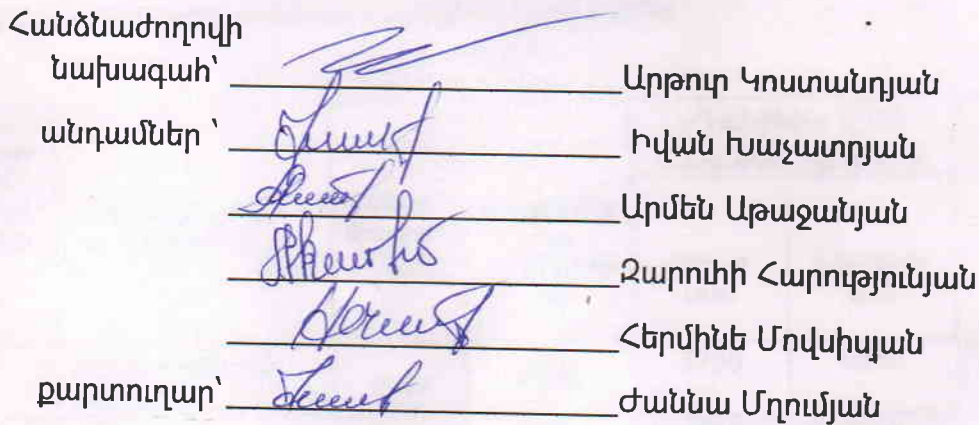 Հանձնաժողովի
նախագահ՝ Արթուր Կոստանդյան
անդամներ ՝ Իվան Խաչատրյան
Արմեն Աթաջանյան
Զարուհի Հարությունյան
Հերմինե Մովսիսյան
քարտուղար՝ Ժաննա Մղումյան